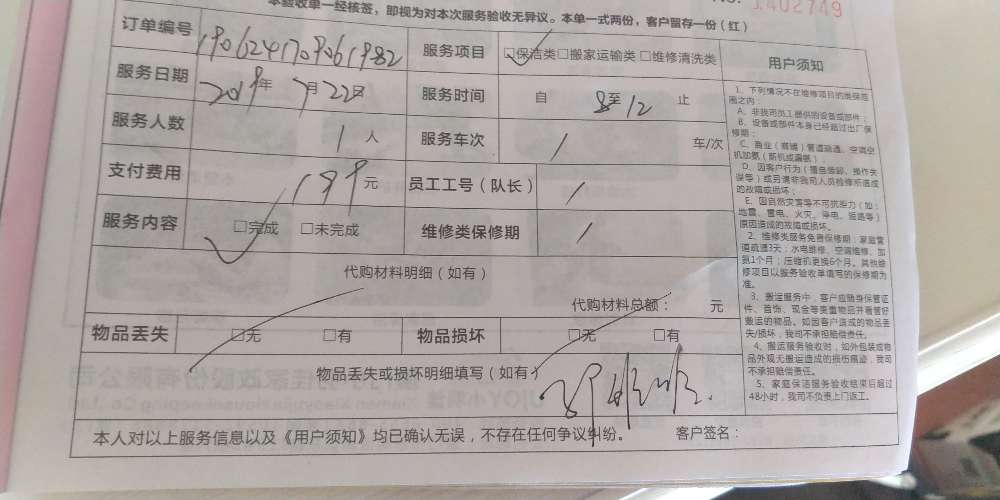 本验收单一经核签，即视为对本次服务验收无异议。本单一式两份，客户留存一份（红）
1402749
订单编号 1906241709061982 服务项目 □保洁类□搬家运输类 □维修清洗类 用户须知
服务日期 2019年 7月22日 服务时间 自 8至12 止
服务人数 1 人 服务车次 / 车/次
支付费用 199元 员工工号（队长） /
服务内容 □完成 □未完成 维修类保修期 /
代购材料明细（如有）
代购材料总额： 元
物品丢失 □无 □有 物品损坏 □无 □有
物品丢失或损坏明细填写（如有）
本人对以上服务信息以及《用户须知》均已确认无误，不存在任何争议纠纷。 客户签名：
1、下列情况不在维修项目的维保范
围之内：
A、非我司员工提供的设备或部件；
B、设备或部件本身已经超过出厂保
修期；
C、商业（商铺）管道疏通、空调空
机加氨（新机或漏氨）；
D、因客户行为（擅自拆卸、操作失
误等）或另请非我司人员检修所造成
的故障或损坏；
E、因自然灾害等不可抗拒力（如：
地震、雷电、火灾、停电、短路等）
原因造成的故障或损坏。
2、维修类服务免费保修期：家庭管
道疏通3天；水电维修、空调维修、加
氨1个月；压缩机更换6个月。其他维
修项目以服务验收单填写的保修期为
准。
3、搬运服务中，客户应随身保管证
件、首饰、现金等贵重物品并看管好
搬运的物品。如因客户造成的物品丢
失/损坏，我司不承担赔偿责任。
4、搬运服务验收时，如外包装或物
品外观无搬运造成的损伤痕迹，我司
不承担赔偿责任。
5、家庭保洁服务验收结束后超过
48小时，我司不负责上门返工。